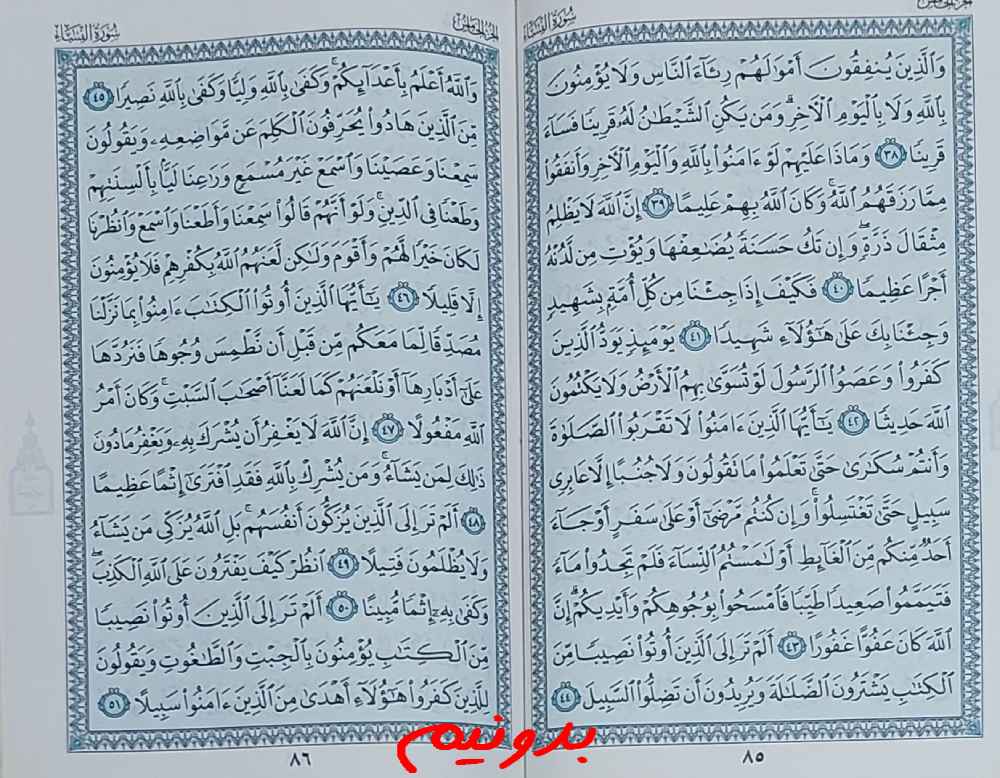 سُورَةُ النِّسَاءِ
وَٱلَّذِينَ يُنفِقُونَ أَمْوَٰلَهُمْ رِئَآءَ ٱلنَّاسِ وَلَا يُؤْمِنُونَ
بِٱللَّهِ وَلَا بِٱلْيَوْمِ ٱلْـَٔاخِرِۗ وَمَن يَكُنِ ٱلشَّيْطَٰنُ لَهُۥ قَرِينًا فَسَآءَ
قَرِينًا ٣٨ وَمَاذَا عَلَيْهِمْ لَوْ ءَامَنُوا۟ بِٱللَّهِ وَٱلْيَوْمِ ٱلْـَٔاخِرِ وَأَنفَقُوا۟
مِمَّا رَزَقَهُمُ ٱللَّهُۚ وَكَانَ ٱللَّهُ بِهِمْ عَلِيمًا ٣٩ إِنَّ ٱللَّهَ لَا يَظْلِمُ
مِثْقَالَ ذَرَّةٍۖ وَإِن تَكُ حَسَنَةً يُضَٰعِفْهَا وَيُؤْتِ مِن لَّدُنْهُ
أَجْرًا عَظِيمًا ٤٠ فَكَيْفَ إِذَا جِئْنَا مِن كُلِّ أُمَّةٍۭ بِشَهِيدٍ
وَجِئْنَا بِكَ عَلَىٰ هَٰٓؤُلَآءِ شَهِيدًا ٤١ يَوْمَئِذٍ يَوَدُّ ٱلَّذِينَ
كَفَرُوا۟ وَعَصَوُا۟ ٱلرَّسُولَ لَوْ تُسَوَّىٰ بِهِمُ ٱلْأَرْضُ وَلَا يَكْتُمُونَ
ٱللَّهَ حَدِيثًا ٤٢ يَٰٓأَيُّهَا ٱلَّذِينَ ءَامَنُوا۟ لَا تَقْرَبُوا۟ ٱلصَّلَوٰةَ
وَأَنتُمْ سُكَٰرَىٰ حَتَّىٰ تَعْلَمُوا۟ مَا تَقُولُونَ وَلَا جُنُبًا إِلَّا عَابِرِى
سَبِيلٍ حَتَّىٰ تَغْتَسِلُوا۟ۚ وَإِن كُنتُم مَّرْضَىٰٓ أَوْ عَلَىٰ سَفَرٍ أَوْ جَآءَ
أَحَدٌ مِّنكُم مِّنَ ٱلْغَآئِطِ أَوْ لَٰمَسْتُمُ ٱلنِّسَآءَ فَلَمْ تَجِدُوا۟ مَآءً
فَتَيَمَّمُوا۟ صَعِيدًا طَيِّبًا فَٱمْسَحُوا۟ بِوُجُوهِكُمْ وَأَيْدِيكُمْۗ إِنَّ
ٱللَّهَ كَانَ عَفُوًّا غَفُورًا ٤٣ أَلَمْ تَرَ إِلَى ٱلَّذِينَ أُوتُوا۟ نَصِيبًا مِّنَ
ٱلْكِتَٰبِ يَشْتَرُونَ ٱلضَّلَٰلَةَ وَيُرِيدُونَ أَن تَضِلُّوا۟ ٱلسَّبِيلَ ٤٤
٨٥
الجُزْءُ الخَامِسُ
سُورَةُ النِّسَاءِ
وَٱللَّهُ أَعْلَمُ بِأَعْدَآئِكُمْۚ وَكَفَىٰ بِٱللَّهِ وَلِيًّا وَكَفَىٰ بِٱللَّهِ نَصِيرًا ٤٥
مِّنَ ٱلَّذِينَ هَادُوا۟ يُحَرِّفُونَ ٱلْكَلِمَ عَن مَّوَاضِعِهِۦ وَيَقُولُونَ
سَمِعْنَا وَعَصَيْنَا وَٱسْمَعْ غَيْرَ مُسْمَعٍ وَرَٰعِنَا لَيًّۢا بِأَلْسِنَتِهِمْ
وَطَعْنًا فِى ٱلدِّينِۚ وَلَوْ أَنَّهُمْ قَالُوا۟ سَمِعْنَا وَأَطَعْنَا وَٱسْمَعْ وَٱنظُرْنَا
لَكَانَ خَيْرًا لَّهُمْ وَأَقْوَمَ وَلَٰكِن لَّعَنَهُمُ ٱللَّهُ بِكُفْرِهِمْ فَلَا يُؤْمِنُونَ
إِلَّا قَلِيلًا ٤٦ يَٰٓأَيُّهَا ٱلَّذِينَ أُوتُوا۟ ٱلْكِتَٰبَ ءَامِنُوا۟ بِمَا نَزَّلْنَا
مُصَدِّقًا لِّمَا مَعَكُم مِّن قَبْلِ أَن نَّطْمِسَ وُجُوهًا فَنَرُدَّهَا
عَلَىٰٓ أَدْبَارِهَآ أَوْ نَلْعَنَهُمْ كَمَا لَعَنَّآ أَصْحَٰبَ ٱلسَّبْتِۚ وَكَانَ أَمْرُ
ٱللَّهِ مَفْعُولًا ٤٧ إِنَّ ٱللَّهَ لَا يَغْفِرُ أَن يُشْرَكَ بِهِۦ وَيَغْفِرُ مَا دُونَ
ذَٰلِكَ لِمَن يَشَآءُۚ وَمَن يُشْرِكْ بِٱللَّهِ فَقَدِ ٱفْتَرَىٰٓ إِثْمًا عَظِيمًا
٤٨ أَلَمْ تَرَ إِلَى ٱلَّذِينَ يُزَكُّونَ أَنفُسَهُمۚ بَلِ ٱللَّهُ يُزَكِّى مَن يَشَآءُ
وَلَا يُظْلَمُونَ فَتِيلًا ٤٩ ٱنظُرْ كَيْفَ يَفْتَرُونَ عَلَى ٱللَّهِ ٱلْكَذِبَۖ
وَكَفَىٰ بِهِۦٓ إِثْمًا مُّبِينًا ٥٠ أَلَمْ تَرَ إِلَى ٱلَّذِينَ أُوتُوا۟ نَصِيبًا
مِّنَ ٱلْكِتَٰبِ يُؤْمِنُونَ بِٱلْجِبْتِ وَٱلطَّٰغُوتِ وَيَقُولُونَ
لِلَّذِينَ كَفَرُوا۟ هَٰٓؤُلَآءِ أَهْدَىٰ مِنَ ٱلَّذِينَ ءَامَنُوا۟ سَبِيلًا ٥١
٨٦
بدونيم